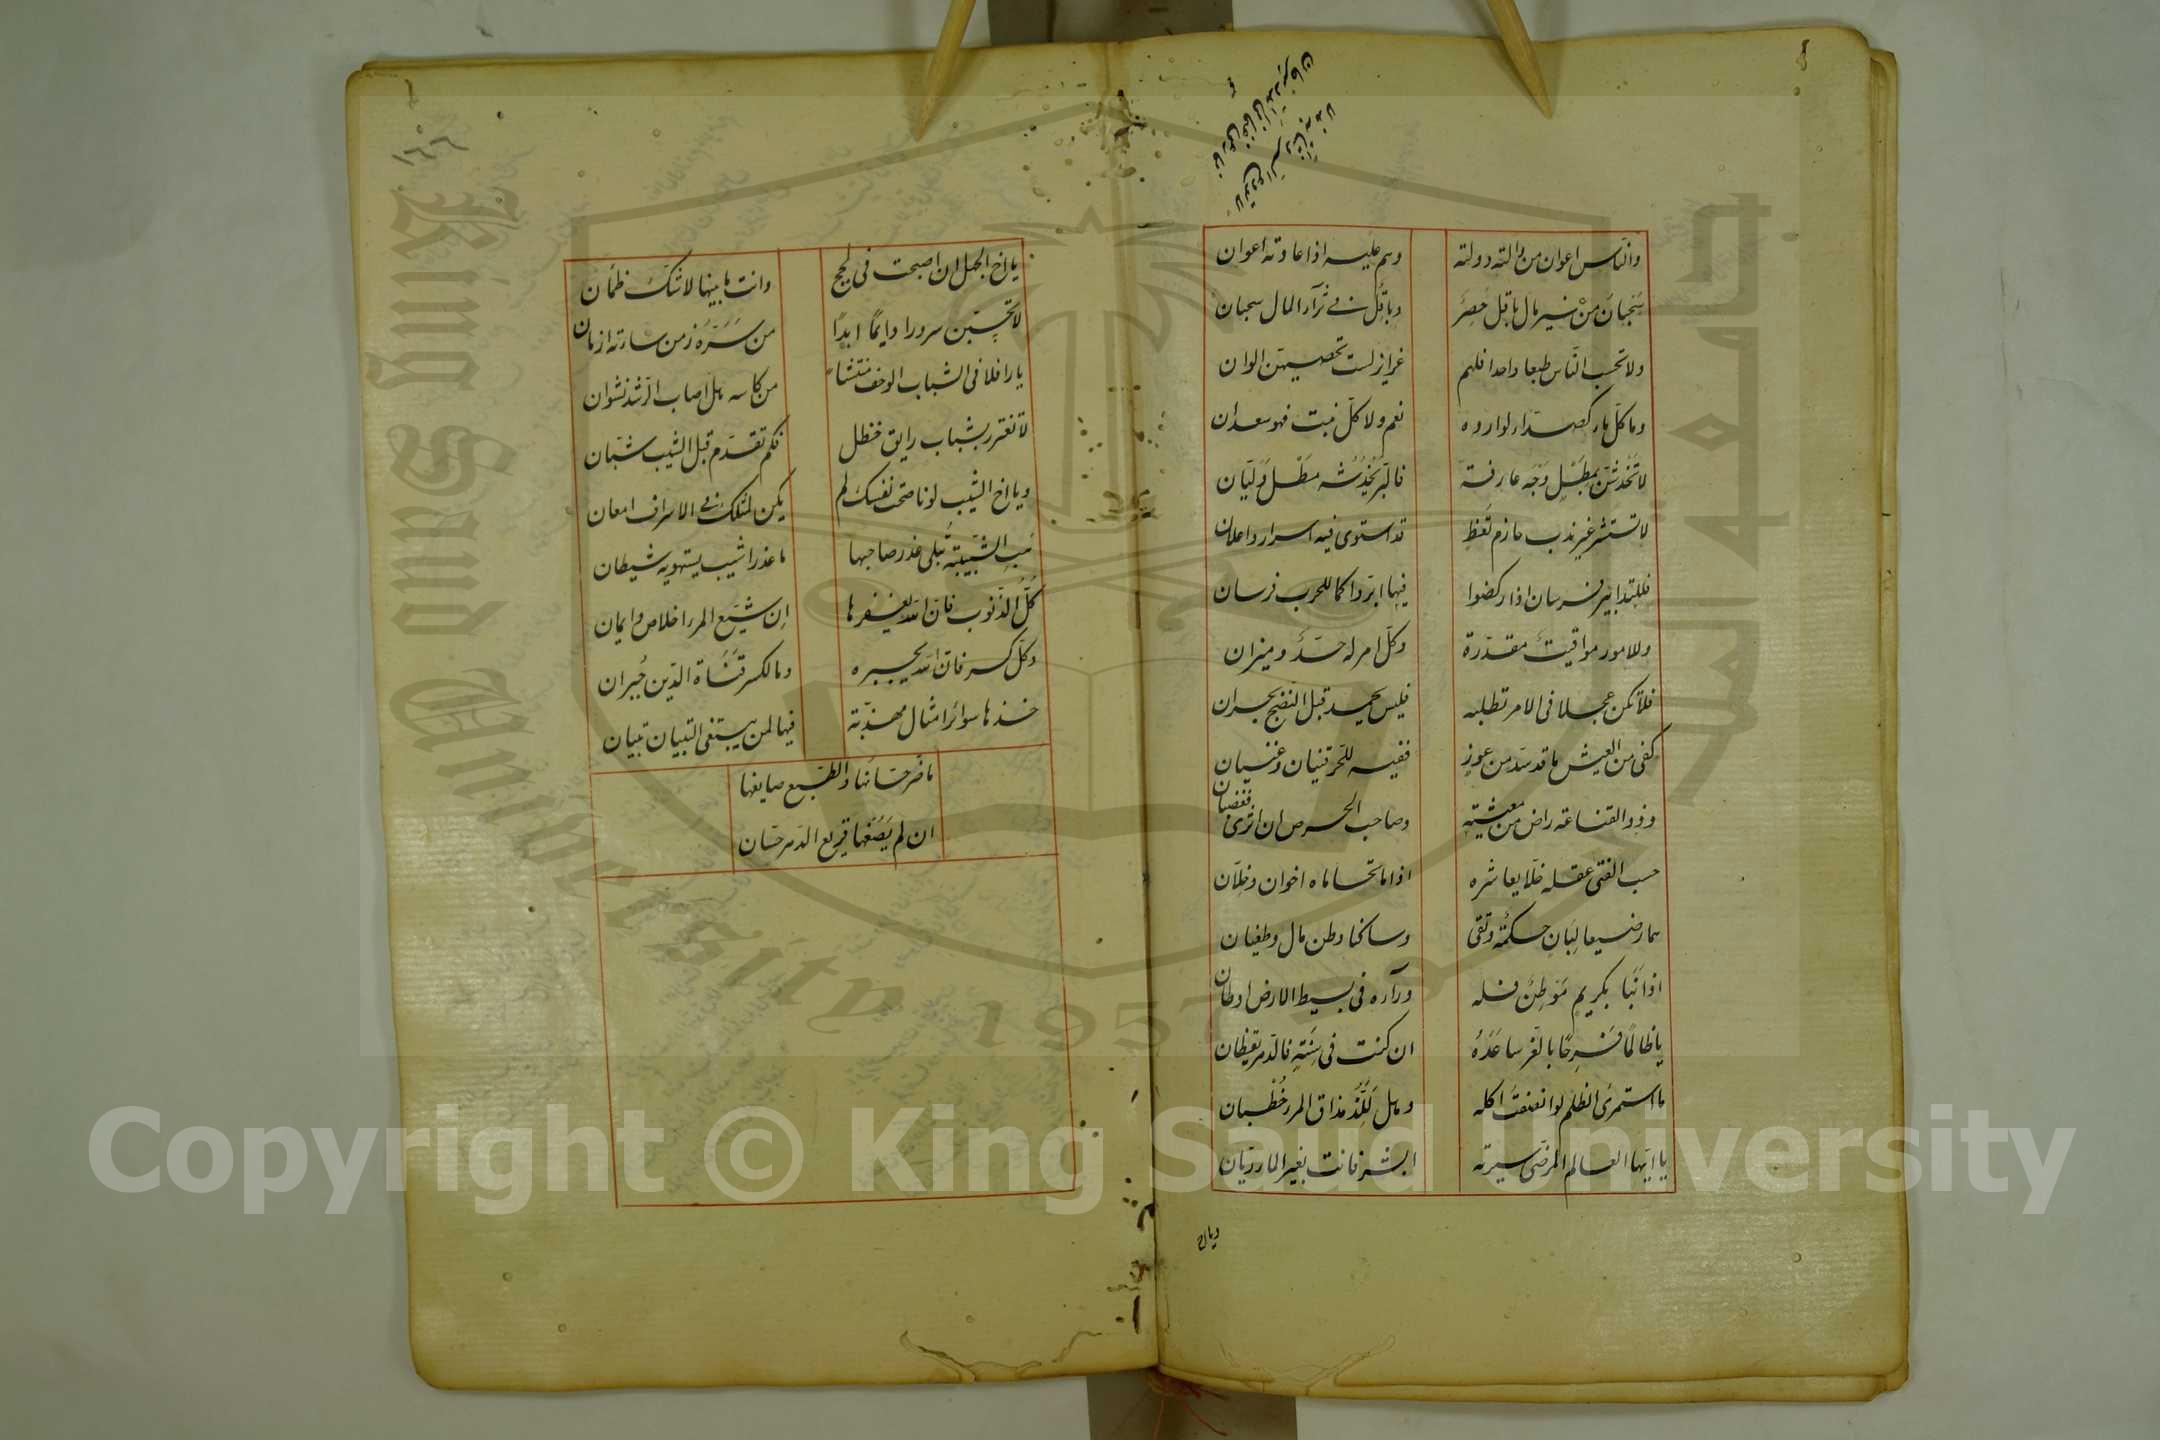 والناس اعوان من والته دولته وهم عليه اذا عادته اعوان
سحبان من غير مال باقل حصر وباقل في ثرآء المال سحبان
ولا تحسب الناس طبعا واحدا فلهم غرايز لست تحصيهن الوان
وما كل ماء كصداء لوارده نعم ولا كل نبت فهو سعدان
لا تخدشن بمطل وجه عارفة فالبر يخدشه مطل وليان
لا تستشر غير ندب حازم يقظ قد استوى فيه اسرار واعلان
فللتدابير فرسان اذا ركضوا فيها ابروا كما للحرب فرسان
وللامور مواقيت مقدرة وكل امر له حد وميزان
فلا تكن عجلا في الامر تطلبه فليس يحمد قبل النضج بحران
كفى من العيش ما قد سد من عوز ففيه للحر قنيان وغنيان
وذو القناعة راض من معيشته وصاحب الحرص ان اثرى فغضبان
حسب الفتى عقله خلا يعاشره اذا ما تحاماه اخوان وخلان
هما رضيعا لبان حكمة وتقى وساكنا وطن مال وطغيان
اذا نبا بكريم موطن فله ورآءه في بسيط الارض اوطان
يا ظالما فرحا بالعز ساعده ان كنت في سنة فالدهر يقظان
ما استمرئ الظلم لو انصفت اكله وهل يلذ مذاق المرء خطبان
يا ايها العالم المرضي سيرته ابشر فانت بغير الماء ريان
ويا اخ
١٦٦
يا اخ الجهل ان اصبحت في لجج وانت ما بينها لا شك ظمأن
لا تحسبن سرورا دايما ابدا من سره زمن ساءته ازمان
يا رافلا في الشباب الوحف منتشيا من كاسه هل اصاب الرشد نشوان
لا تغترر بشباب رايق خضل فكم تقدم قبل الشيب شبان
ويا اخ الشيب لو ناصحت نفسك لم يكن لمثلك في الاسراف امعان
هب الشبيبة تبلى عذر صاحبها ما عذر اشيب يستهويه شيطان
كل الذنوب فان الله يغفرها ان شيع المرء اخلاص وايمان
وكل كسر فان الله يجبره وما لكسر قناة الدين جبران
خذها سوائر امثال مهذبة فيها لمن يبتغي التبيان تبيان
ما ضر حسانها والطبع صايغها
ان لم يصغها قريع الدهر حسان
King Saud University 1957
Copyright © King Saud University